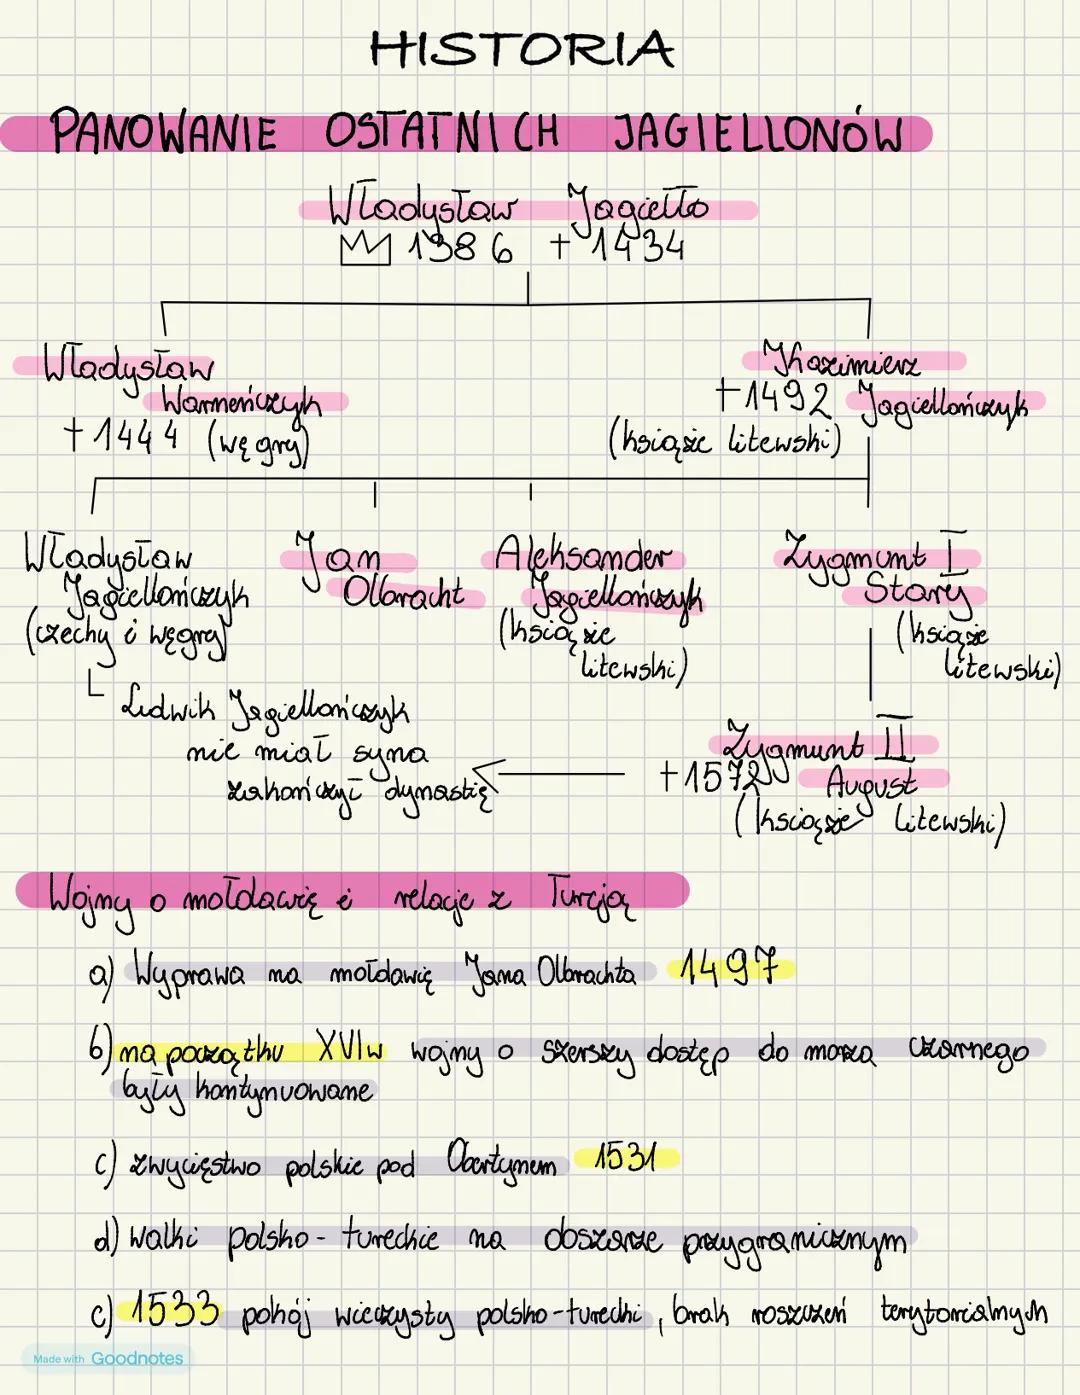 HISTORIA
PANOWANIE OSTATNICH JAGIELLONÓW
Władysław Jagiełło
1386 +1434
Władysław
Warneńczyk
+1444 (węgry)
Kazimierz
+1492 Jagiellończyk
(książe litewski)
Władysław
Jagiellończyk
(czechy i węgry)
Jan
Olbracht
Aleksander
Jagiellończyk
(książe
litewski)
Zygmunt I
Stary
(książe
litewski)
Ludwik Jagiellończyk
nie miał syna
zakończył dynastię
Zygmunt II
+1572 August
(książe litewski)
Wojny o mołdawię i relacje z Turcją
a) Wyprawa na mołdawię Jana Olbrachta 1497
b) na początku XVIw wojny o szerszy dostęp do morza czarnego
były kontynuowane
c) zwycięstwo polskie pod Obertynem 1531
d) walki polsko-tureckie na obszarze przygranicznym
e) 1533 pokój wieczysty polsko-turecki, brak roszczeń terytorialnych
Made with Goodnotes